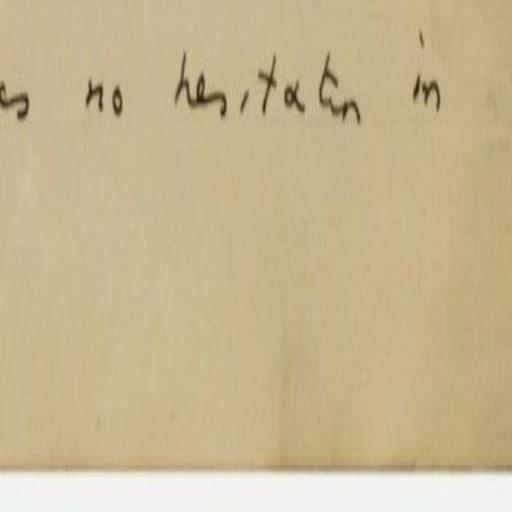 no hesitation in